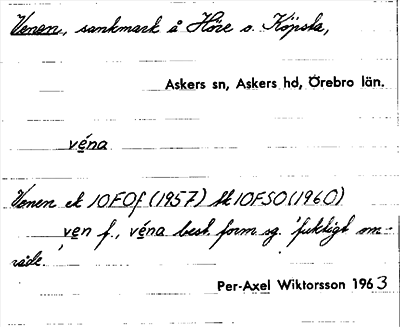 Venen, sankmark å Höre o. Köpsta,
Askers sn, Askers hd, Örebro län.
véna
Venen ek 10F0f (1957) tk 10FSO (1960)
ven f., véna best. form sg. 'fuktigt om-
råde.'
Per-Axel Wiktorsson 1963